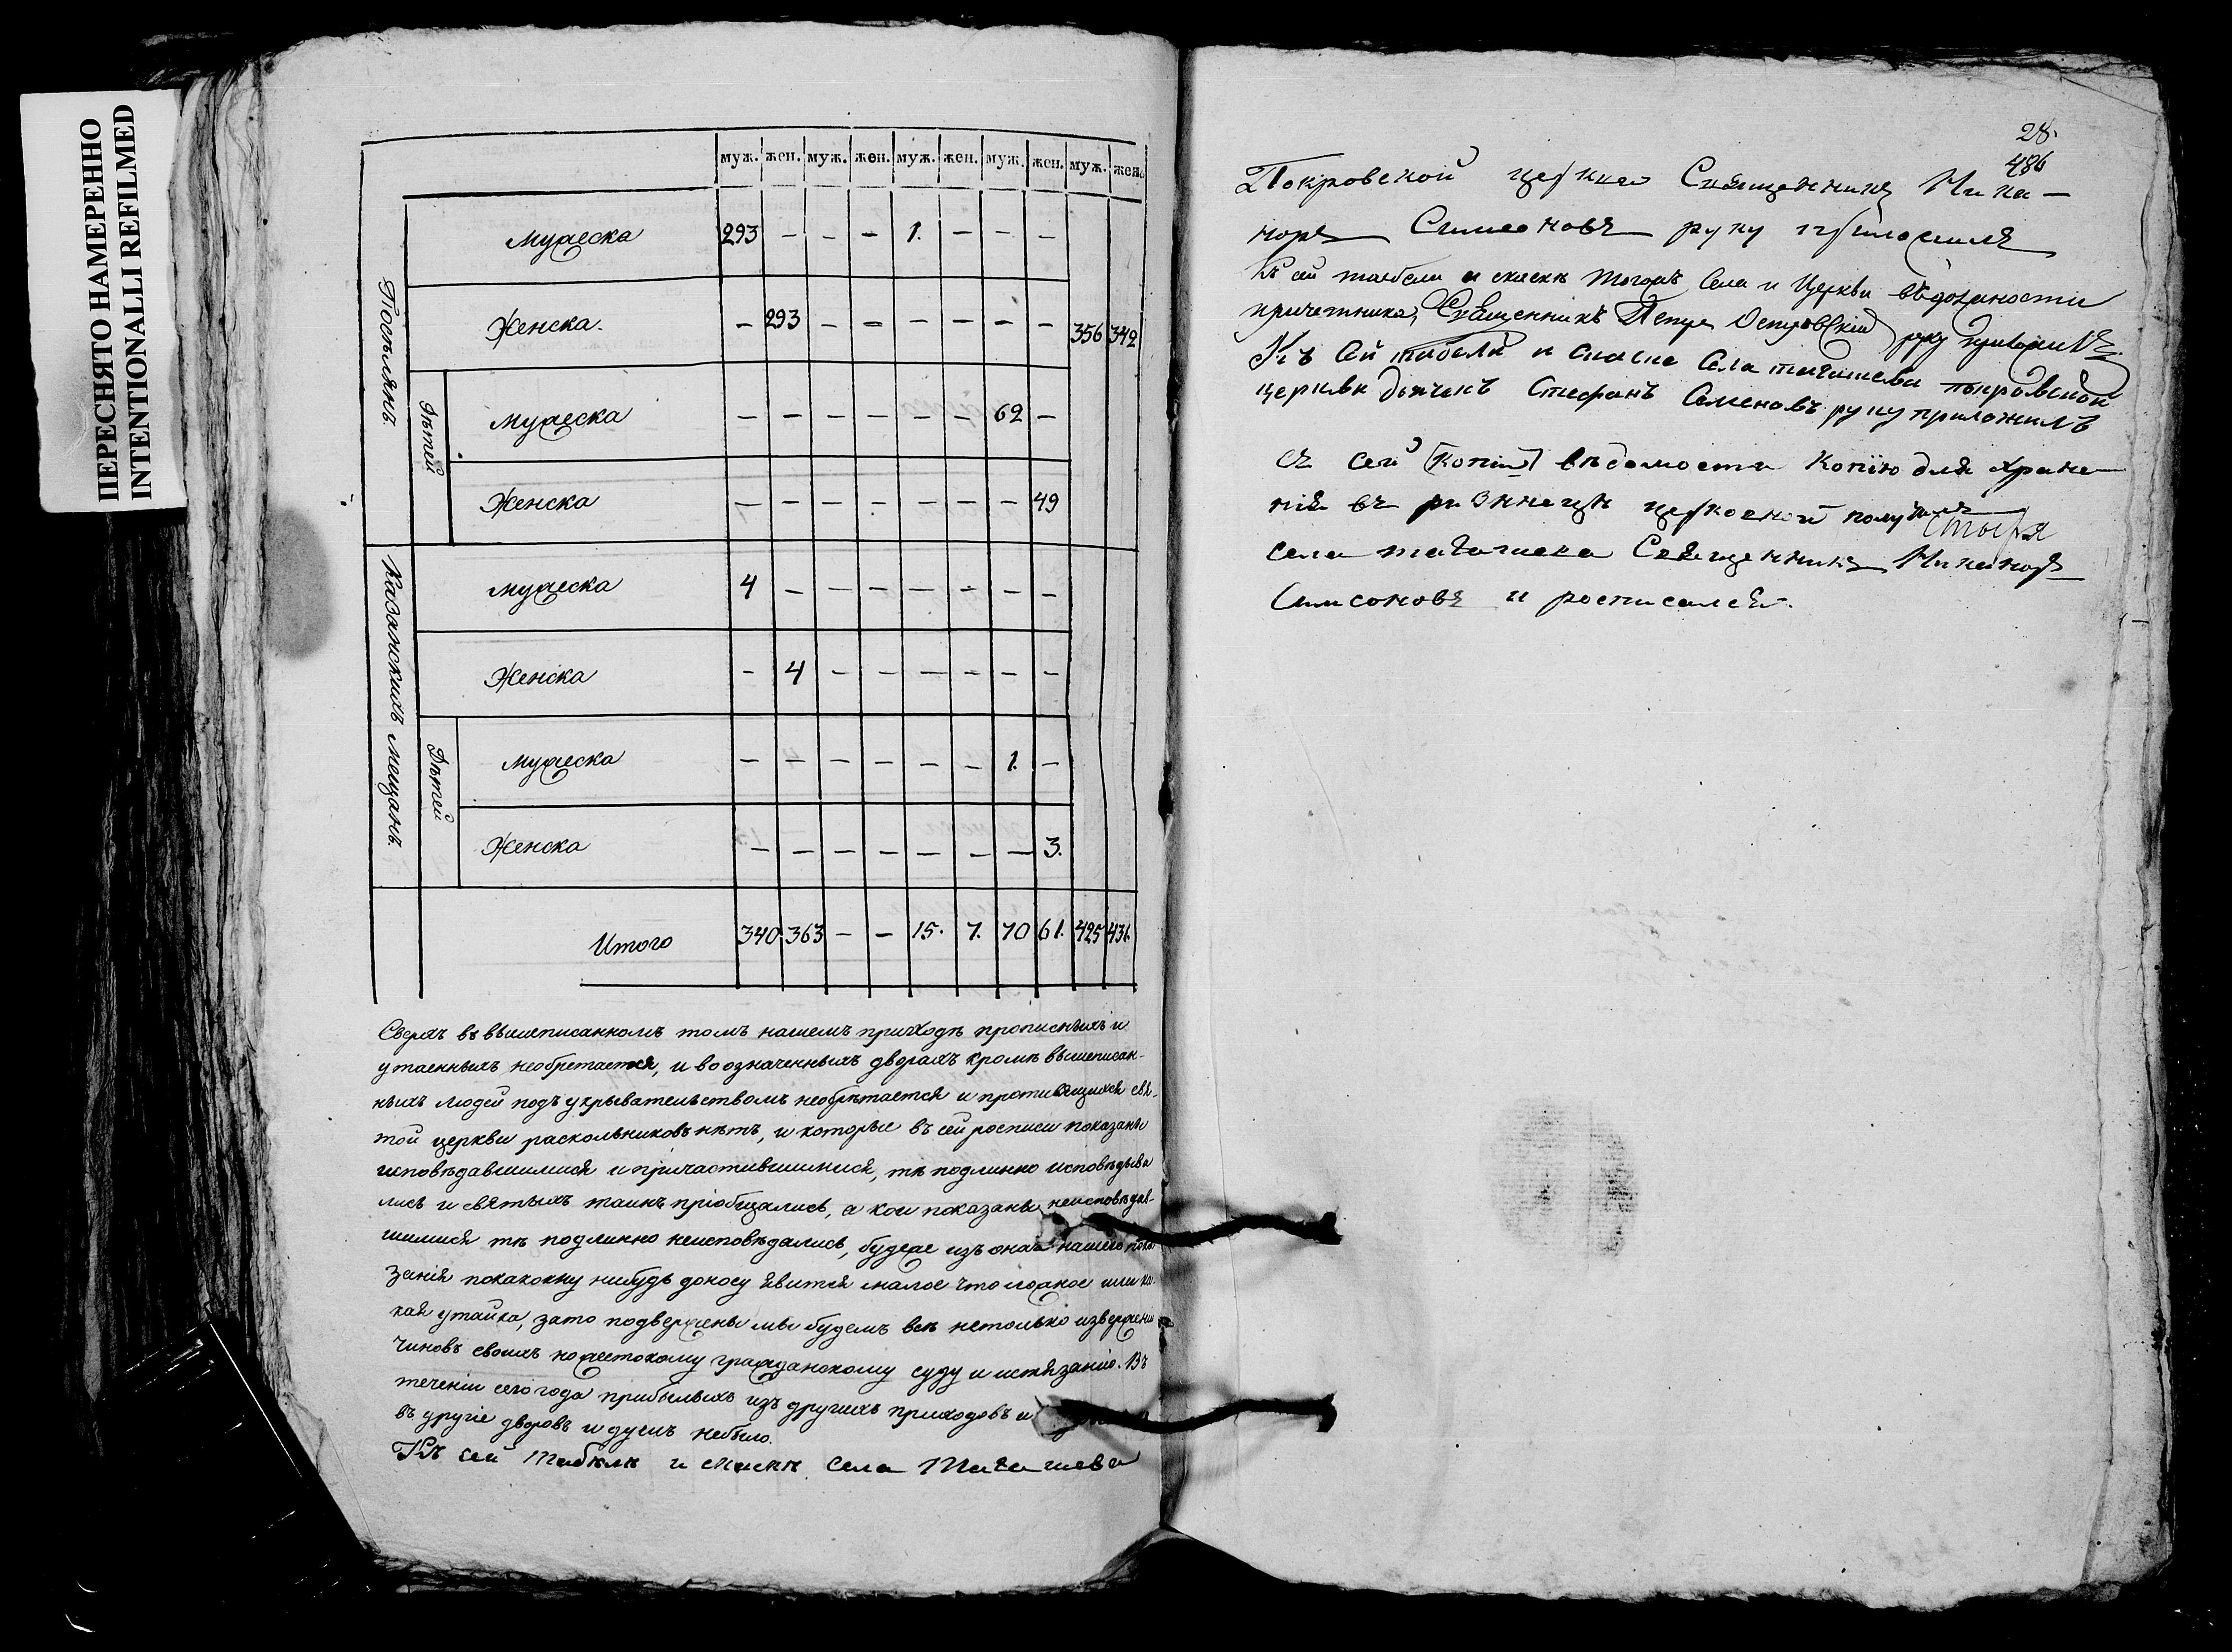 ПЕРЕСНЯТО НАМЕРЕННО
INTENTIONALLI REFILMED
муж. жен. муж. жен. муж. жен. муж. жен. муж. жен.
Поселянъ.
Мужеска 293 – – – 1. – – –
Женска. – 293 – – – – – – 356 342
Дѣтей
Мужеска – – – – – – 62 –
Женска – – – – – – – 49
Казанскихъ мещанъ.
Мужеска 4 – – – – – – –
Женска – 4 – – – – – –
Дѣтей
Мужеска – – – – – – 1. –
Женска – – – – – – – 3.
Итого 340. 363 – – 15. 7. 70 61. 425 431.
Сверхъ въ вышеписанномъ томъ нашемъ приходѣ прописныхъ и
утаенныхъ необретается, и во означенныхъ дворахъ кромѣ вышеписан-
ныхъ людей подъ укрывательствомъ необрѣтается и противящихся свя-
той церкви раскольниковъ нѣтъ, и которые въ сей росписи показаны
исповѣдавшимися и причастившимися, тѣ подлинно исповѣдыва
лись и святыхъ таинъ пріобщались, а кои показаны неисповѣдав-
шимися тѣ подлинно неисповѣдались, буде же изъ онаго нашего пока
занія покакому нибудь доносу явится малое что ложное или ка-
кая утайка, зато подвержены мы будемъ всѣ нетолько извержению
чиновъ своихъ но жестокому гражданскому суду и истязанію. Въ
теченіи сего года прибылыхъ изъ другихъ приходовъ и
въ другіе дворовъ и душъ небыло.
Къ сей табелѣ и сказкѣ села Тагашева
28.
486
Покровской церкви Священникъ Ника-
норъ Симеоновъ руку приложилъ
Къ сей табели и скаскѣ тогожъ Села и Церкви въ должности
причетника, Священникъ Петръ Островскій руку приложилъ
Къ сей табели и скаске Села тагашева покровской
церкви дьячекъ Стефанъ Семеновъ руку приложилъ
Съ сей копіи ведомости копію для хране
нія въ ризницѣ церковной получилъ
села тагашева Священникъ Никаноръ
Симеоновъ и росписался.